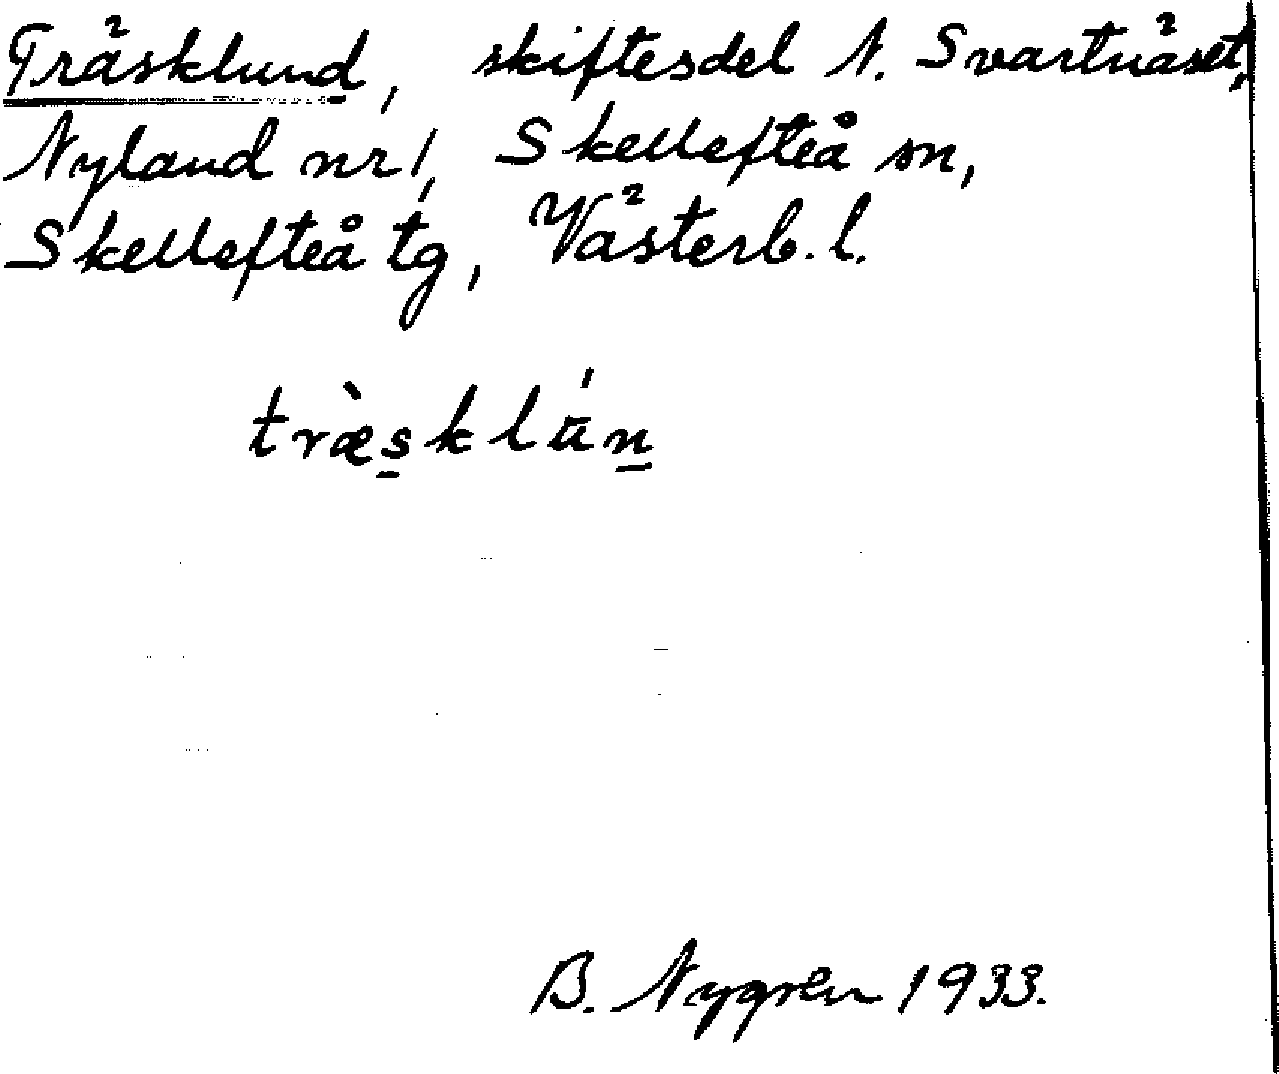 Träsklund, skiftesdel N. Svartnäset,
Nyland nr 1, Skellefteå sn,
Skellefteå tg, Västerb. l.
træ̀sklún
B. Nygren 1933.